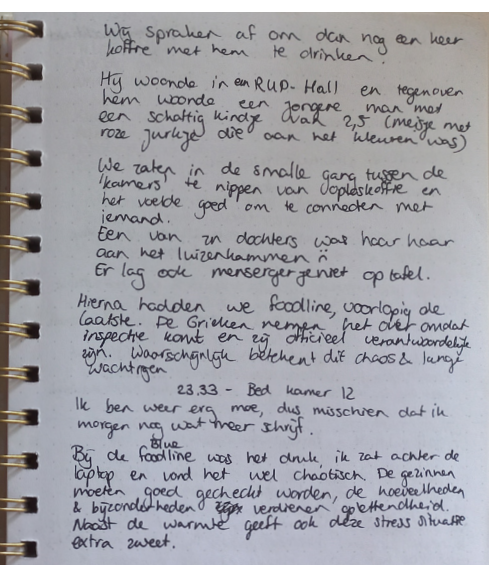 Wij spraken af om dan nog een keer
koffie met hem te drinken.
Hij woonde in en RUP-Hall en tegenover
hem woonde een jongere man met
een schattig kindje van 2,5 (meisje met
roze jurkje die aan het kleuren was)
We zaten in de smalle gang tussen de
'kamers' te nippen van oploskoffie en
het voelde goed om te connecten met
iemand.
Een van zn dochters was haar haar
aan het luizenkammen
Er lag ook mensergerjeniet op tafel.
Hierna hadden we foodline, voorlopig de
laatste. De Grieken nemen het over omdat
inspectie komt en zij officieel verantwoordelijk
zijn. Waarschijnlijk betekent dit chaos & lange
wachtrijen
23.33 - Bed kamer 12
Ik ben weer erg moe, dus misschien dat ik
morgen nog wat meer schrijf.
Blue
Bij de foodline was het druk, ik zat achter de
laptop en vond het wel chaotisch. De gezinnen
moeten goed gecheckt worden, de hoeveelheden
& bijzonderheden verdienen oplettendheid.
Naast de warmte geeft ook deze stress situatie
extra zweet.